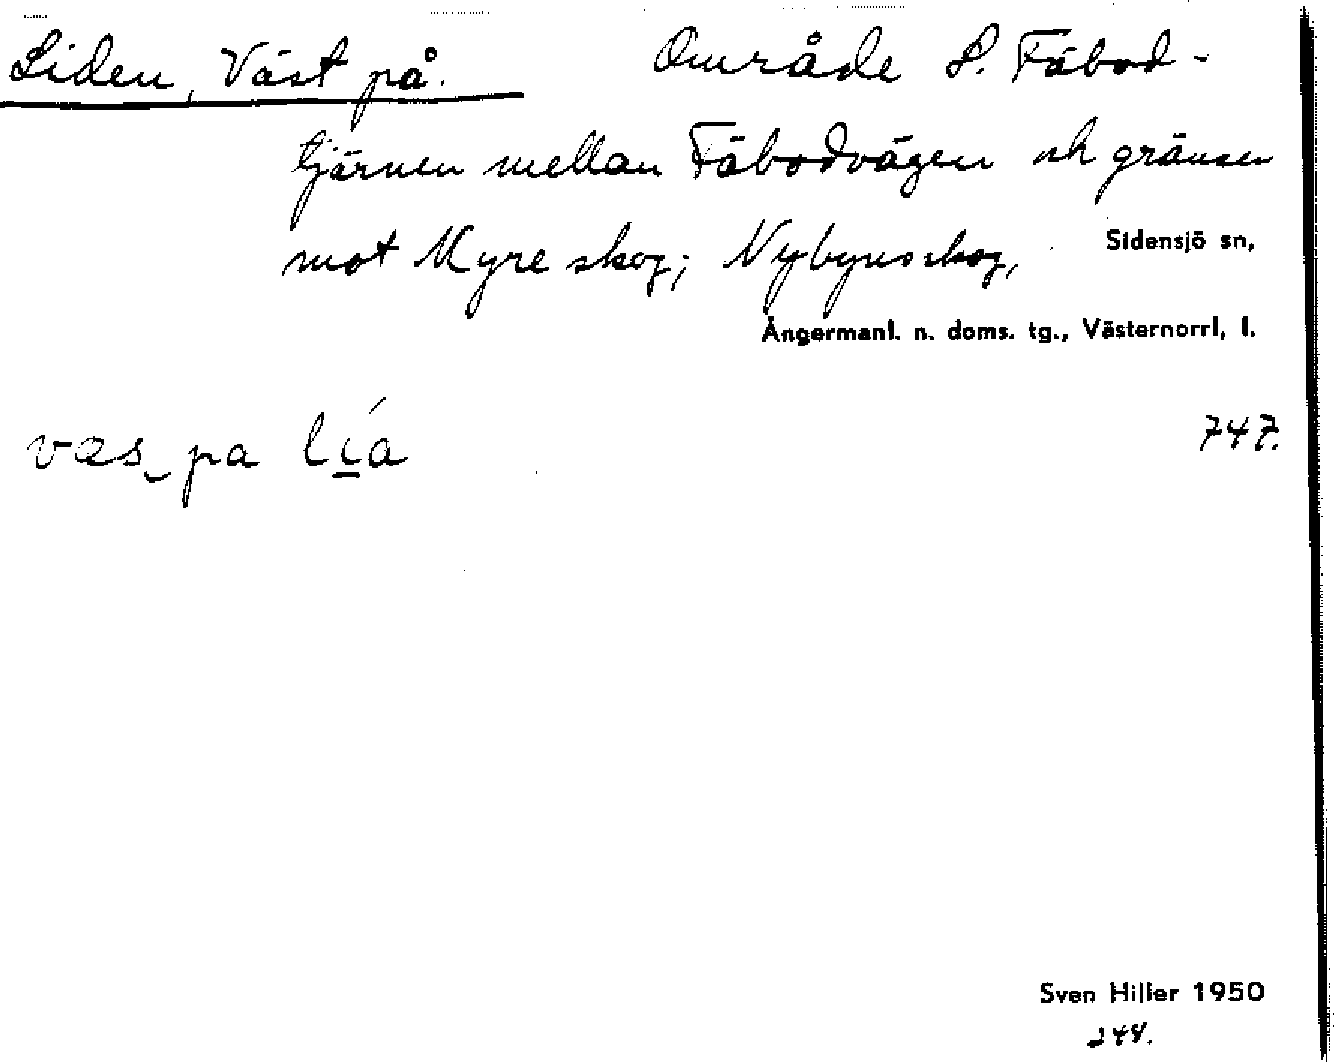 Liden, Väst på. Område S. Fäbod-
tjärnen mellan Fäbodvägen och gränsen
mot Myre skog; Nybyns skog,
Sidensjö sn,
Ångermanl. n. doms. tg., Västernorrl, l.
væs‿pa lía
747.
Sven Hiller 1950
244.